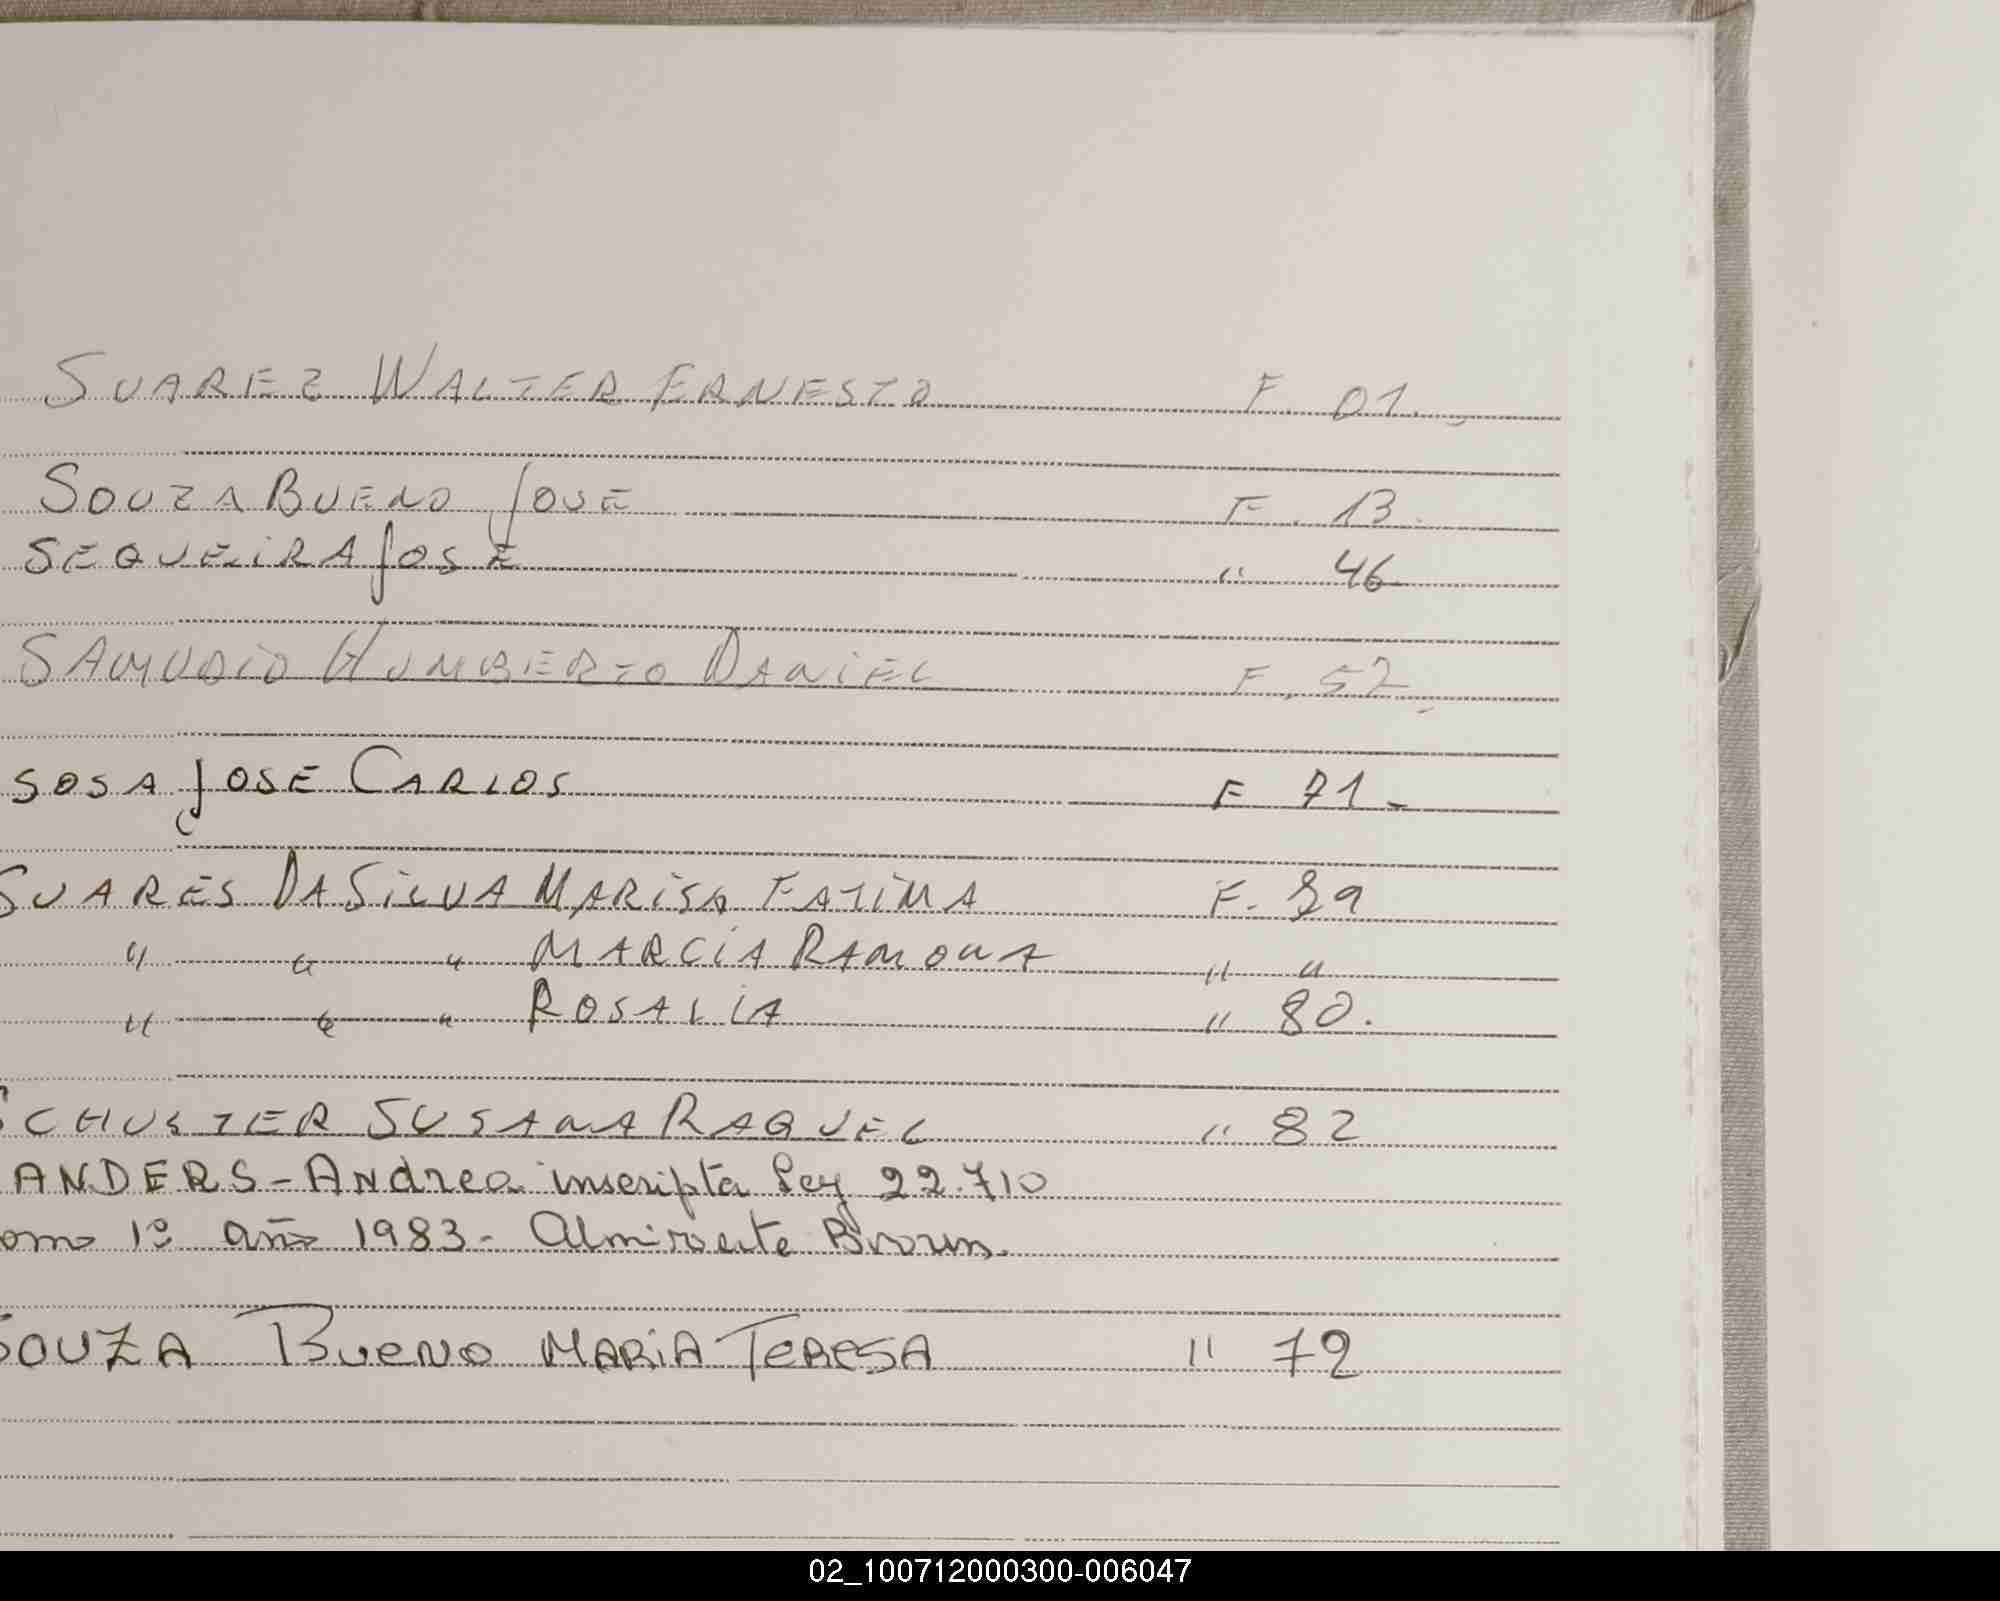 SUAREZ WALTER ERNESTO F. 01.
SOUZA BUENO JOSE F. 13.
SEQUEIRA JOSE " 46
SAMUDIO HUMBERTO DANIEL F. 52
SOSA JOSE CARLOS F 71.
SUARES DA SILVA MARISA FATIMA F.
" " " MARCIA RAMONA " "
" " " ROSALIA " 80.
SCHUSTER SUSANA RAQUEL " 82
ANDERS - Andrea inscripta ley 22.710
omo 1º año 1983 - Almirante Brown.
SOUZA BUENO MARIA TERESA " 72
02_100712000300-006047